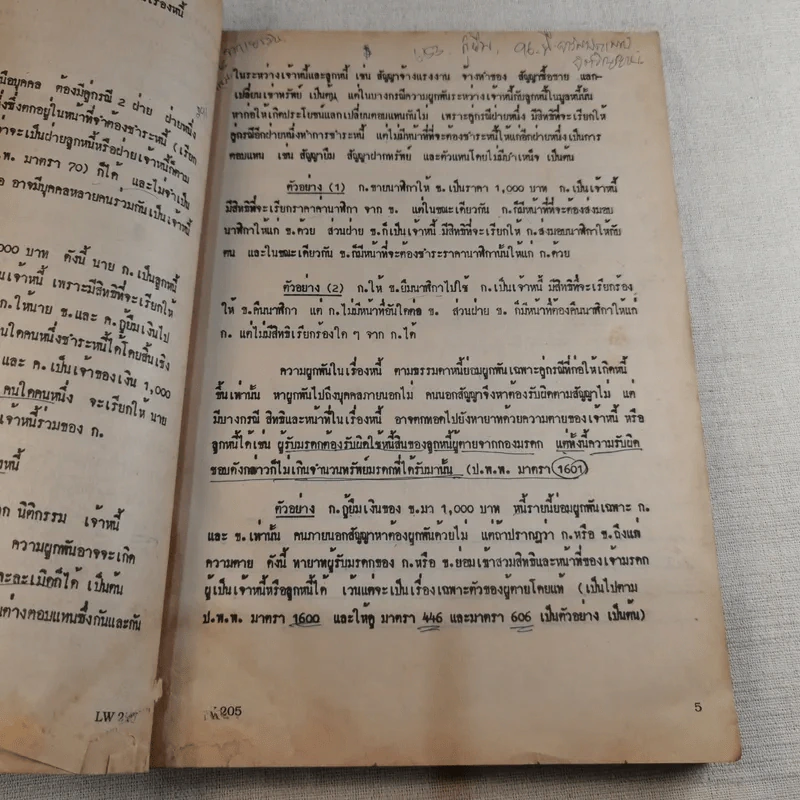 เรื่องหนี้
นือบุคคล ต้องมีคู่กรณี 2 ฝ่าย ฝ่ายหนึ่ง
ซึ่งตกอยู่ในหน้าที่จำต้องชำระหนี้ (เรียก
ว่าจะเป็นฝ่ายลูกหนี้หรือฝ่ายเจ้าหนี้ก็ตาม
.พ. มาตรา 70) ก็ได้ และไม่จำเป็น
อาจมีบุคคลหลายคนร่วมกันเป็นเจ้าหนี้
000 บาท ดังนี้ นาย ก.เป็นลูกหนี้
นเจ้าหนี้ เพราะมีสิทธิที่จะเรียกให้
ก.ให้นาย ข.และ ค.กู้ยืมเงินไป
นใดคนหนึ่งชำระหนี้ได้โดยสิ้นเชิง
และ ค.เป็นเจ้าของเงิน 1,000
คนใดคนหนึ่ง จะเรียกให้ นาย
เจ้าหนี้ร่วมของ ก.
หนี้
ก นิติกรรม เจ้าหนี้
ความผูกพันอาจจะเกิด
ละละเมิดก็ได้ เป็นต้น
นต่างตอบแทนซึ่งกันและกัน
LW
ในระหว่างเจ้าหนี้และลูกหนี้ เช่น สัญญาจ้างแรงงาน จ้างทำของ สัญญาซื้อขาย แลก-
เปลี่ยนเจ้าทรัพย์ เป็นต้น แต่ในบางกรณีความผูกพันระหว่างเจ้าหนี้กับลูกหนี้ในมูลหนี้นั้น
หาก่อให้เกิดประโยชนแลกเปลี่ยนตอบแทนกันไม่ เพราะคู่กรณีฝ่ายหนึ่ง มีสิทธิที่จะเรียกให้
คู่กรณีอีกฝ่ายหนึ่งทำการชำระหนี้ แต่ไม่มีหน้าที่ที่จะต้องชำระหนี้ให้แก่อีกฝ่ายหนึ่งเป็นการ
ตอบแทน เช่น สัญญายืม สัญญาฝากทรัพย์ และตัวแทนโดยไม่มีบำเหน็จ เป็นต้น
ตัวอย่าง (1) ก.ขายนาฬิกาให้ ข.เป็นราคา 1,000 บาท ก.เป็นเจ้าหนี้
มีสิทธิที่จะเรียกราคาค่านาฬิกา จาก ข. แต่ในขณะเดียวกัน ก.ก็มีหน้าที่ที่จะต้องส่งมอบ
นาฬิกาให้แก่ ข.ด้วย ส่วนฝ่าย ข.ก็เป็นเจ้าหนี้ มีสิทธิที่จะเรียกให้ ก.ส่งมอบนาฬิกาให้กับ
ตน และในขณะเดียวกัน ข.ก็มีหน้าที่จะต้องชำระราคานาฬิกานั้นให้แก่ ก.ด้วย
ตัวอย่าง (2) ก.ให้ ข.ยืมนาฬิกาไปใช้ ก.เป็นเจ้าหนี้ มีสิทธิที่จะเรียกร้อง
ให้ ข.คืนนาฬิกา แต่ ก.ไม่มีหน้าที่อันใดต่อ ข. ส่วนฝ่าย ข. ก็มีหน้าที่ต้องคืนนาฬิกาให้แก่
ก. แต่ไม่มีสิทธิเรียกร้องใด ๆ จาก ก.ได้
ความผูกพันในเรื่องหนี้ ตามธรรมดาหนี้ย่อมผูกพันเฉพาะคู่กรณีที่ก่อให้เกิดหนี้
ขึ้นเท่านั้น หาผูกพันไปถึงบุคคลภายนอกไม่ คนนอกสัญญาจึงหาต้องรับผิดตามสัญญาไม่ แต่
มีบางกรณี สิทธิและหน้าที่ในเรื่องหนี้ อาจตกทอดไปยังทายาทด้วยความตายของเจ้าหนี้ หรือ
ลูกหนี้ได้เช่น ผู้รับมรดกต้องรับผิดใช้หนี้สินของลูกหนี้ผู้ตายจากกองมรดก แต่ทั้งนี้ความรับผิด
ชอบดังกล่าวก็ไม่เกินจำนวนทรัพย์มรดกที่ได้รับมานั้น (ป.พ.พ. มาตรา 1601)
ตัวอย่าง ก.กู้ยืมเงินของ ข.มา 1,000 บาท หนี้รายนี้ย่อมผูกพันเฉพาะ ก.
และ ข.เท่านั้น คนภายนอกสัญญาหาต้องผูกพันด้วยไม่ แต่ถ้าปรากฏว่า ก.หรือ ข.ถึงแก่
ความตาย ดังนี้ ทายาทผู้รับมรดกของ ก.หรือ ข.ย่อมเข้าสวมสิทธิและหน้าที่ของเจ้ามรดก
ผู้เป็นเจ้าหนี้หรือลูกหนี้ได้ เว้นแต่จะเป็นเรื่องเฉพาะตัวของผู้ตายโดยแท้ (เป็นไปตาม
ป.พ.พ. มาตรา 1600 และให้ดู มาตรา 446 และมาตรา 606 เป็นตัวอย่าง เป็นต้น)
205
5